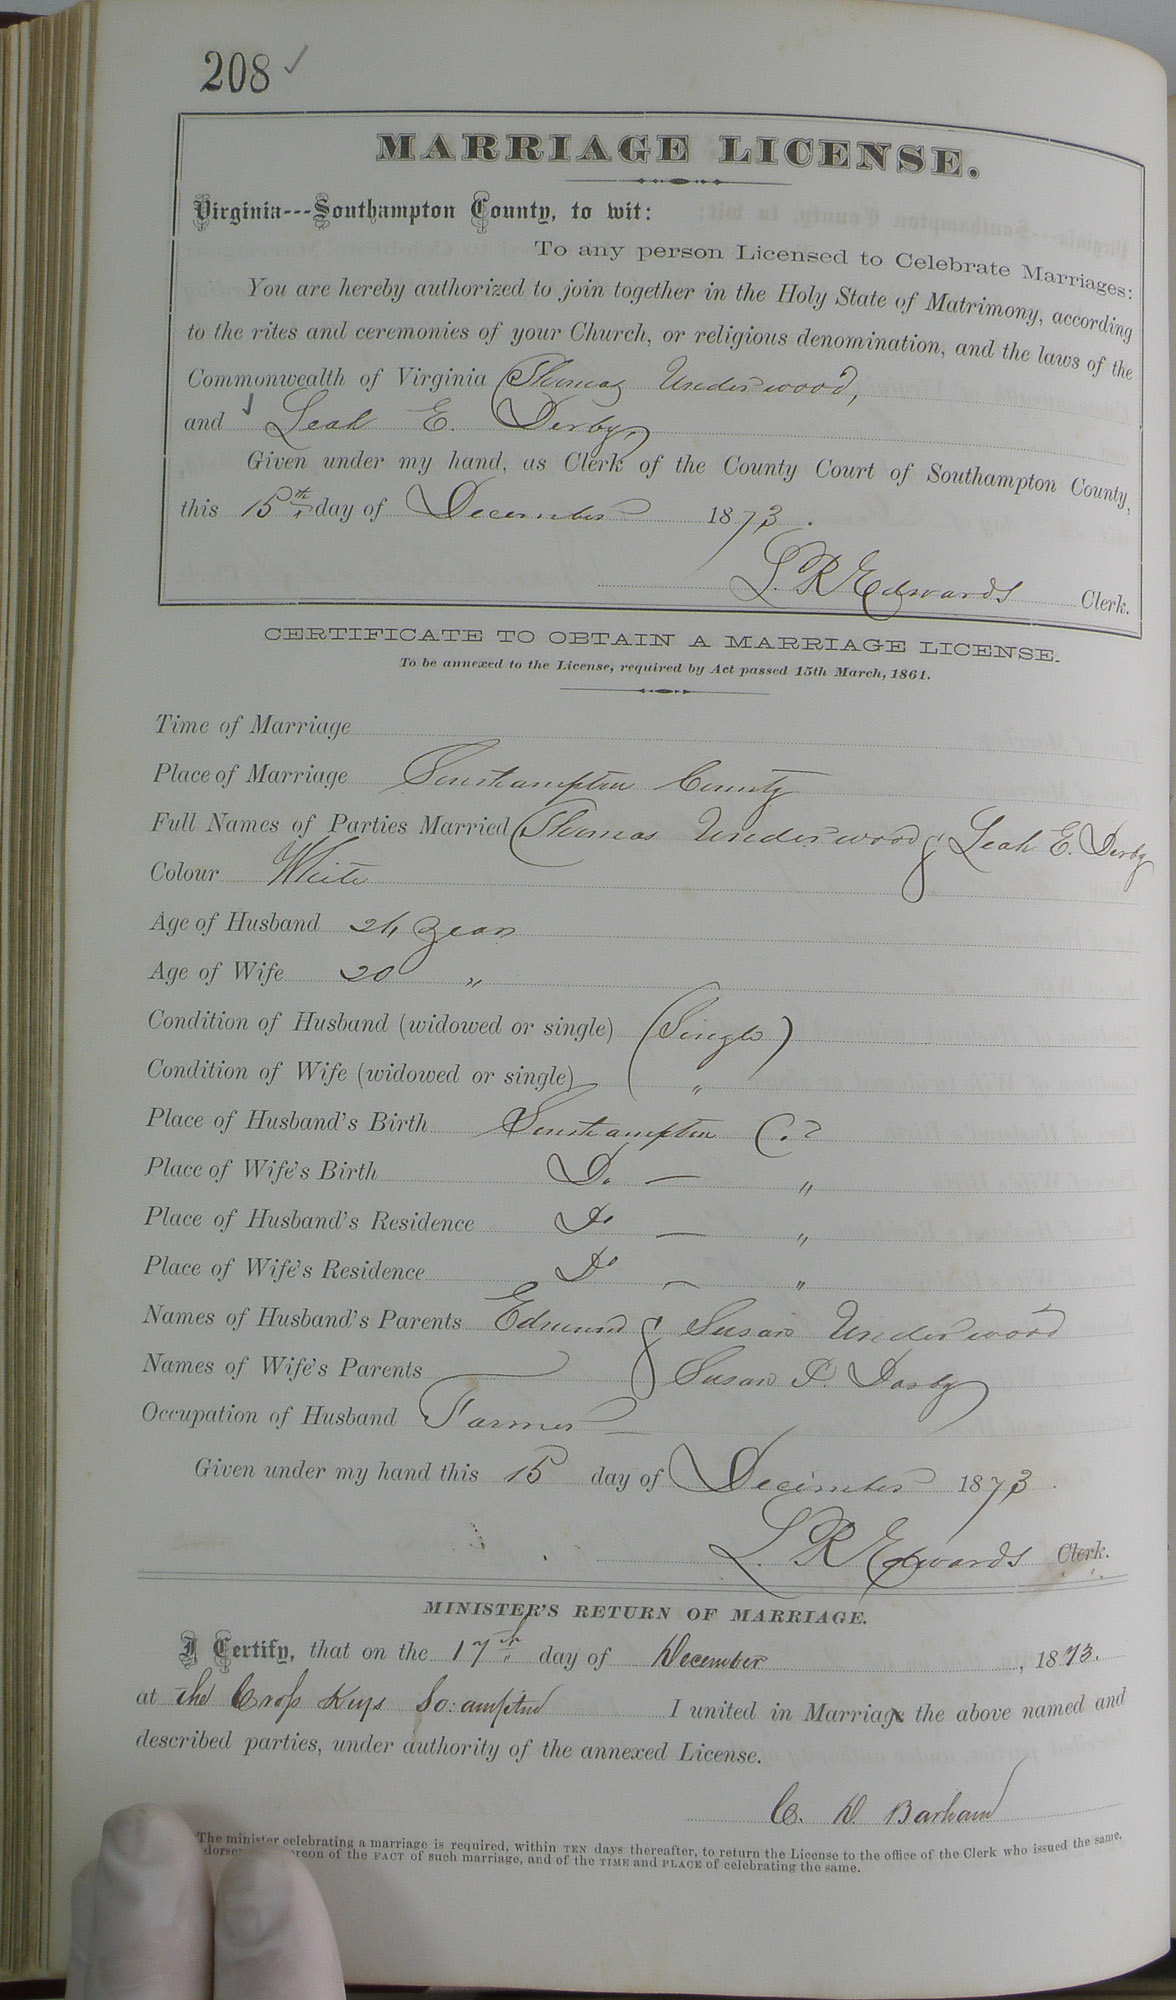 208 ✓
MARRIAGE LICENSE.
Virginia---Southampton County, to wit:
To any person Licensed to Celebrate Marriages:
You are hereby authorized to join together in the Holy State of Matrimony, according
to the rites and ceremonies of your Church, or religious denomination, and the laws of the
Commonwealth of Virginia Thomas Underwood,
and Leah E. Derby,
Given under my hand, as Clerk of the County Court of Southampton County,
this 15th day of December 1873.
L. R. Edwards Clerk.
CERTIFICATE TO OBTAIN A MARRIAGE LICENSE.
To be annexed to the License, required by Act passed 15th March, 1861.
Time of Marriage
Place of Marriage Southampton County
Full Names of Parties Married Thomas Underwood & Leah E. Derby
Colour White
Age of Husband 24 years
Age of Wife 20 "
Condition of Husband (widowed or single) (Single)
Condition of Wife (widowed or single) "
Place of Husband's Birth Southampton Co.
Place of Wife's Birth Do. — "
Place of Husband's Residence Do — "
Place of Wife's Residence Do — "
Names of Husband's Parents Edmund & Susan Underwood
Names of Wife's Parents & Susan P. Darby
Occupation of Husband Farmer
Given under my hand this 15 day of December 1873.
L. R. Edwards Clerk.
MINISTER'S RETURN OF MARRIAGE.
I Certify, that on the 17th day of December, 1873.
at the Cross Keys So:ampton I united in Marriage the above named and
described parties, under authority of the annexed License.
C. D. Barham
The minister celebrating a marriage is required, within TEN days thereafter, to return the License to the office of the Clerk who issued the same,
of the FACT of such marriage, and of the TIME and PLACE of celebrating the same.